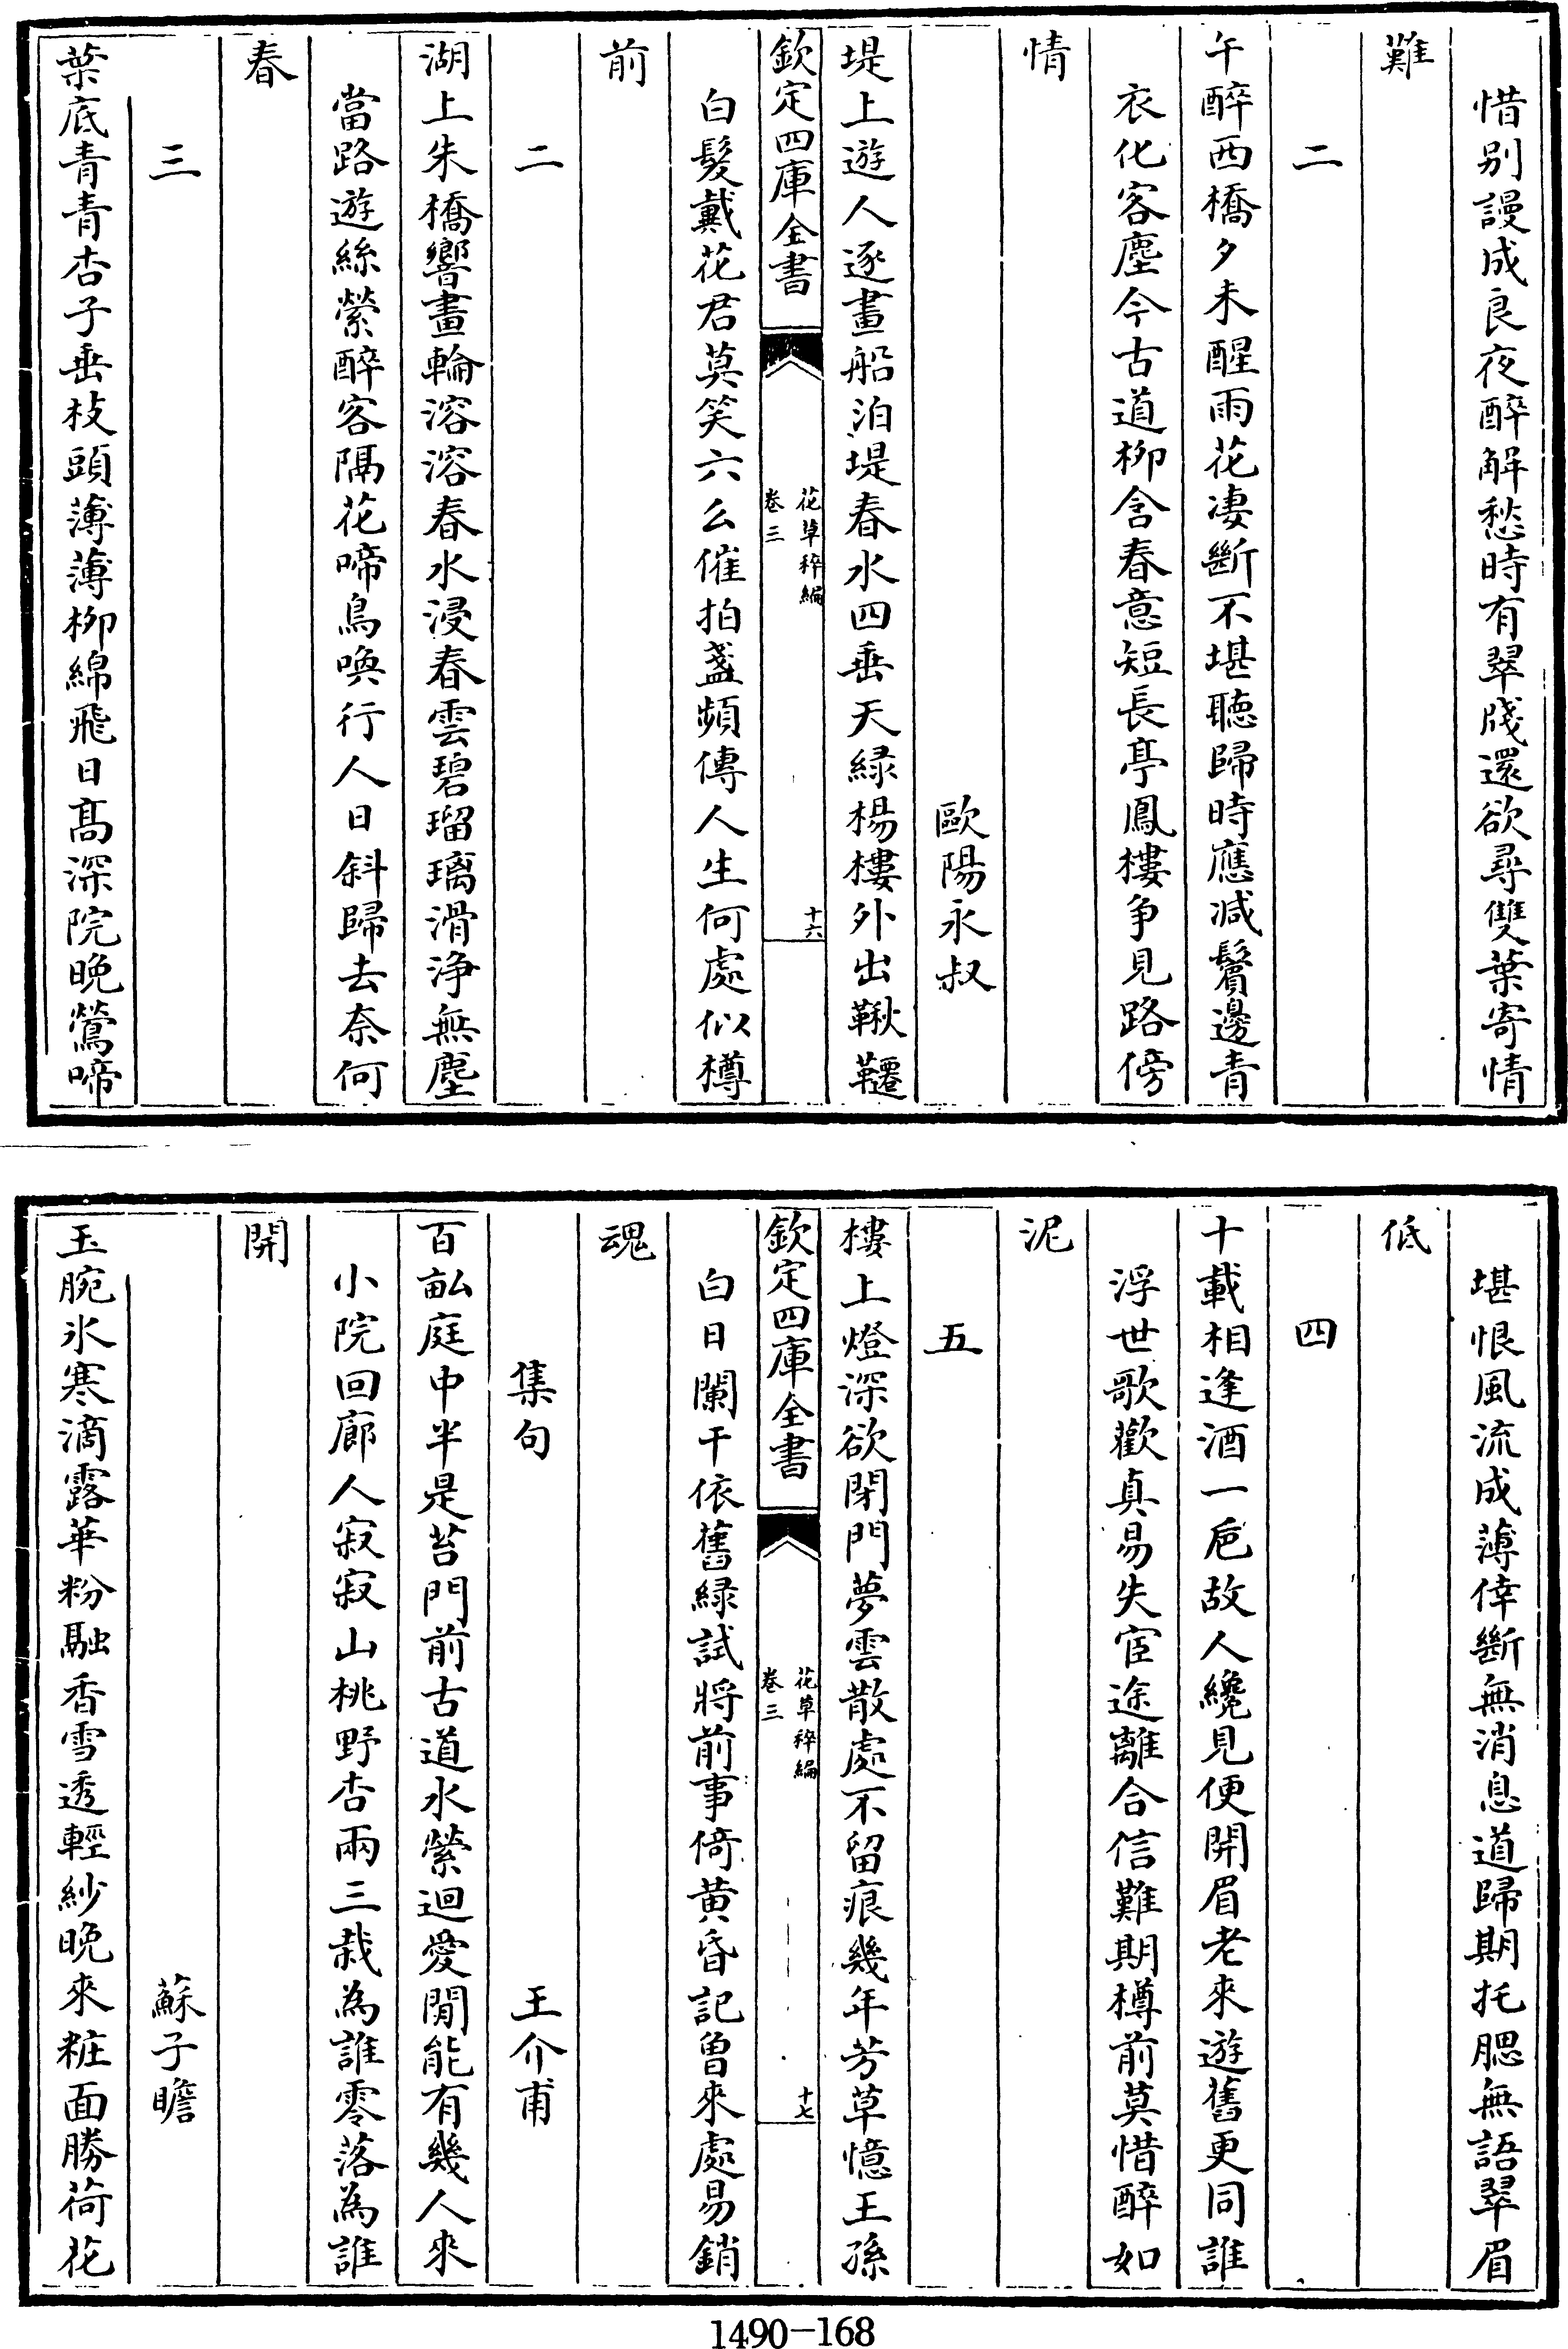 惜别謾成良夜醉解愁時有翠牋還欲尋雙葉寄情
難
二
午醉西橋夕未醒雨花凄斷不堪聽歸時應減鬢邊青
衣化客塵今古道柳含春意短長亭鳳樓争見路傍
情
歐陽永叔
堤上遊人逐畫船泊堤春水四垂天緑楊樓外出鞦韆
欽定四庫全書
花草稡編
卷三
十六
白髮戴花君莫笑六么催拍盞頻傳人生何處似樽
前
二
湖上朱橋響畫輪溶溶春水浸春雲碧瑠璃滑浄無塵
當路遊絲縈醉客隔花啼鳥喚行人日斜歸去奈何
春
三
葉底青青杏子垂枝頭薄薄柳綿飛日髙深院晩鶯啼
堪恨風流成薄倖斷無消息道歸期托腮無語翠眉
低
四
十載相逢酒一巵故人纔見便開眉老來遊舊更同誰
浮世歌歡真易失宦途離合信難期樽前莫惜醉如
泥
五
樓上燈深欲閉門夢雲散處不留痕幾年芳草憶王孫
欽定四庫全書
花草稡編
卷三
十七
白日闌干依舊緑試將前事倚黄昏記曽來處易銷
魂
集句
王介甫
百畝庭中半是苔門前古道水縈迴愛閒能有幾人來
小院回廊人寂寂山桃野杏兩三栽為誰零落為誰
開
蘇子瞻
玉腕氷寒滴露華粉融香雪透輕紗晩來粧面勝荷花
1490-168